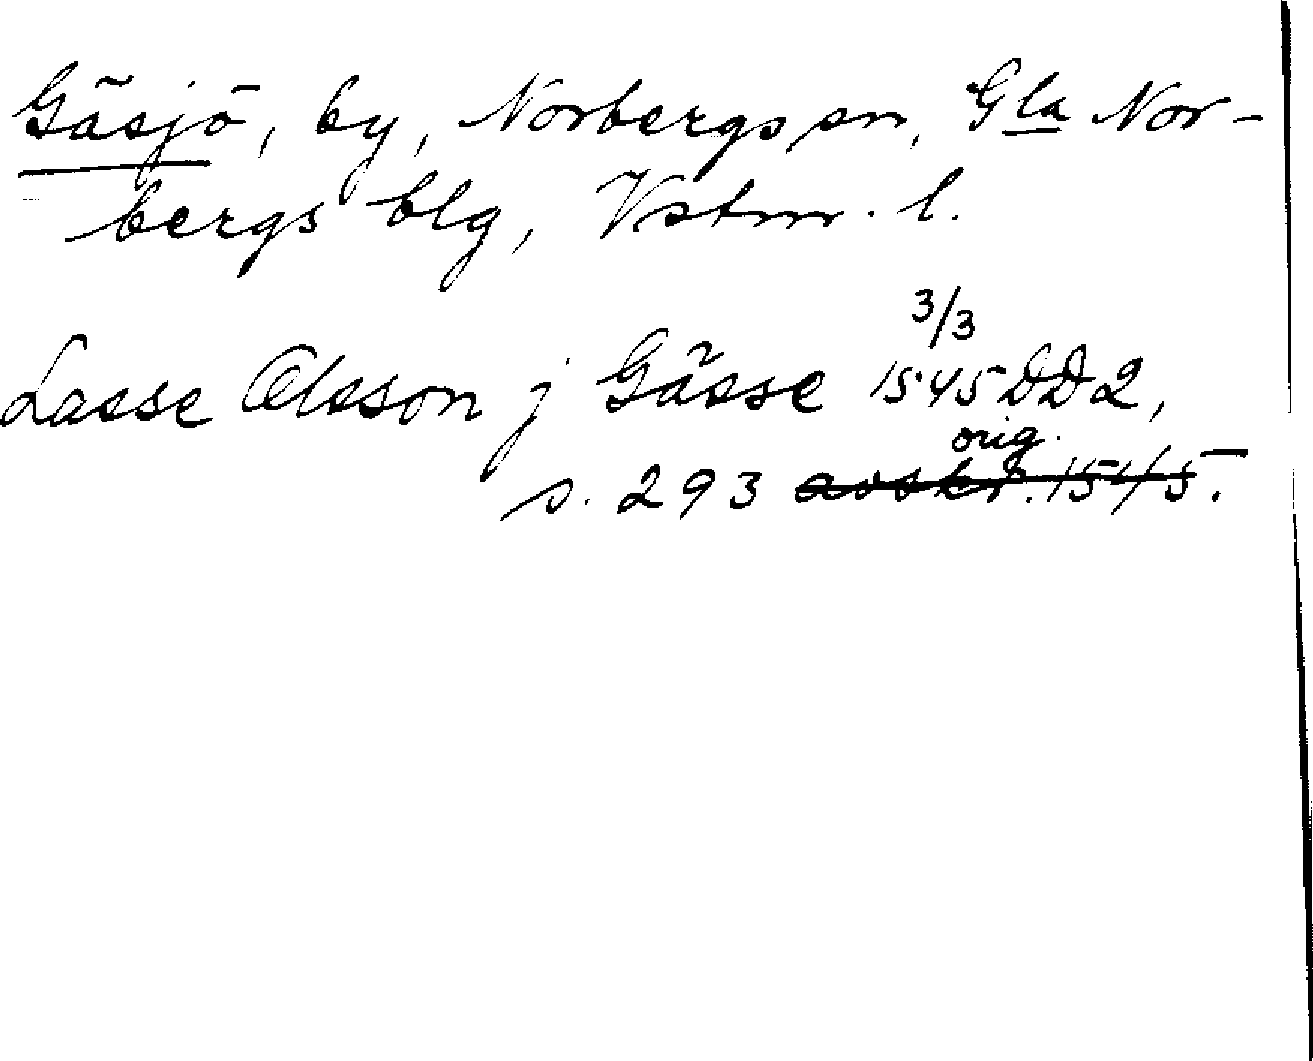 Gäsjö, by, Norbergs sn, Gla Nor-
bergs blg, Vstm. l.
3/3
Lasse Olsson j Gässe 1545 DD2,
orig.
s. 293 avskr. 1545.